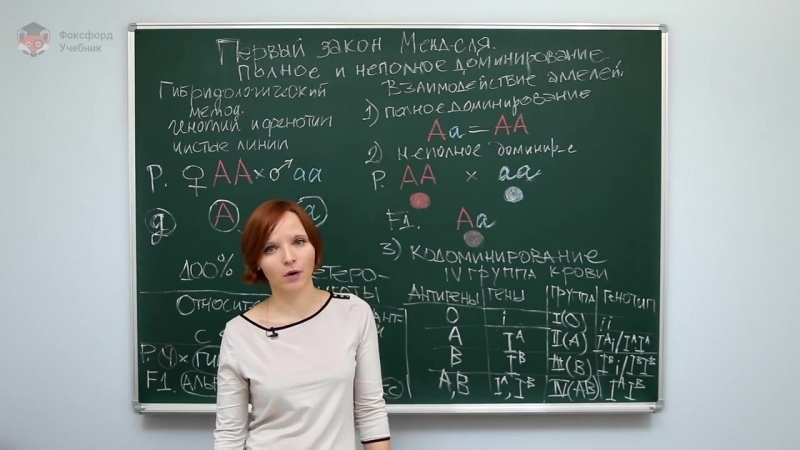 Фоксфорд
Учебник
Первый закон Менделя.
Полное и неполное доминирование
Гибридологический
метод.
генотип и фенотип
чистые линии
P. ♀ AA × ♂ aa
g A a
100%
Относит
P.
F1.
Взаимодействие аллелей.
1) полное доминирование
Aa = AA
2) неполное доминир-е
P. AA × aa
F1. Aa
3) Кодоминирование
IV группа крови
Антигены Гены Группа Генотип
O i I(O) ii
A Iᴬ II(A) Iᴬi/IᴬIᴬ
B Iᴮ III(B) Iᴮi/IᴮIᴮ
A,B Iᴬ,Iᴮ IV(AB) IᴬIᴮ